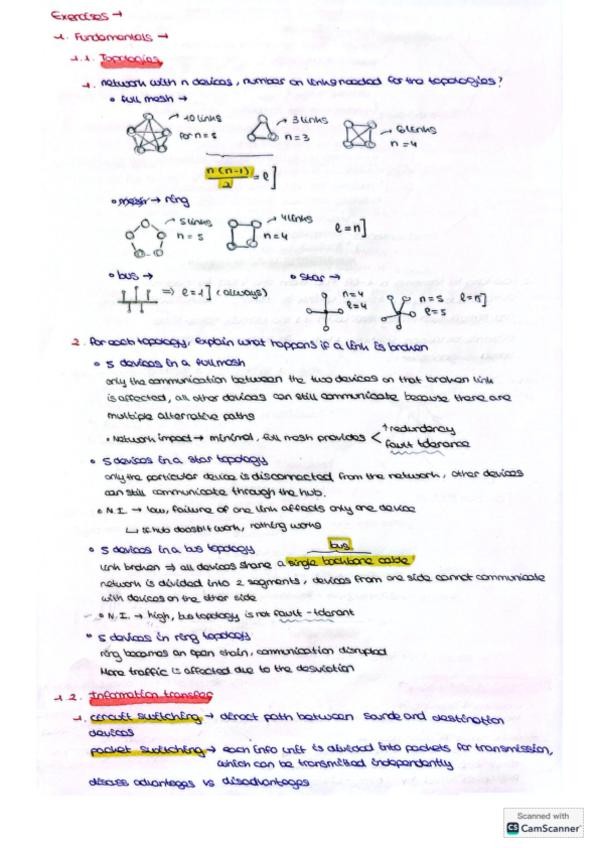 Exercises →
1. Fundamentals →
1.1. Topologies
1. network with n devices, number on links needed for the topologies?
• full mesh →
→ 10 links
for n = 5
→ 3 links
n = 3
→ 6 links
n = 4
n(n-1)/2 = l]
• ring
→ 5 links
n = 5
→ 4 links
n = 4
l = n]
• bus →
⇒ l = 1] (always)
• star →
n = 4
l = 4
n = 5
l = 5
l = n]
2. for each topology, explain what happens if a link is broken
• 5 devices in a fullmesh
only the communication between the two devices on that broken link
is affected, all other devices can still communicate because there are
multiple alternative paths
• Network impact → minimal, full mesh provides < redundency
fault tolerance
• 5 devices in a star topology
only the particular device is disconnected from the network, other devices
can still communicate through the hub.
• N.I. → low, failure of one link affects only one device
↳ if hub doesn't work, nothing works
• 5 devices in a bus topology
bus
link broken ⇒ all devices share a single backbone cable
network is divided into 2 segments, devices from one side cannot communicate
with devices on the other side
• N.I. → high, bus topology is not fault-tolerant
• 5 devices in ring topology
ring becomes an open chain, communication disrupted
More traffic is affected due to the desviation
1.2. Information transfer
1. circuit switching → direct path between source and destination
devices
packet switching → each info unit is divided into packets for transmission,
which can be transmitted independently
discuss advantages vs disadvantages
Scanned with
CS CamScanner